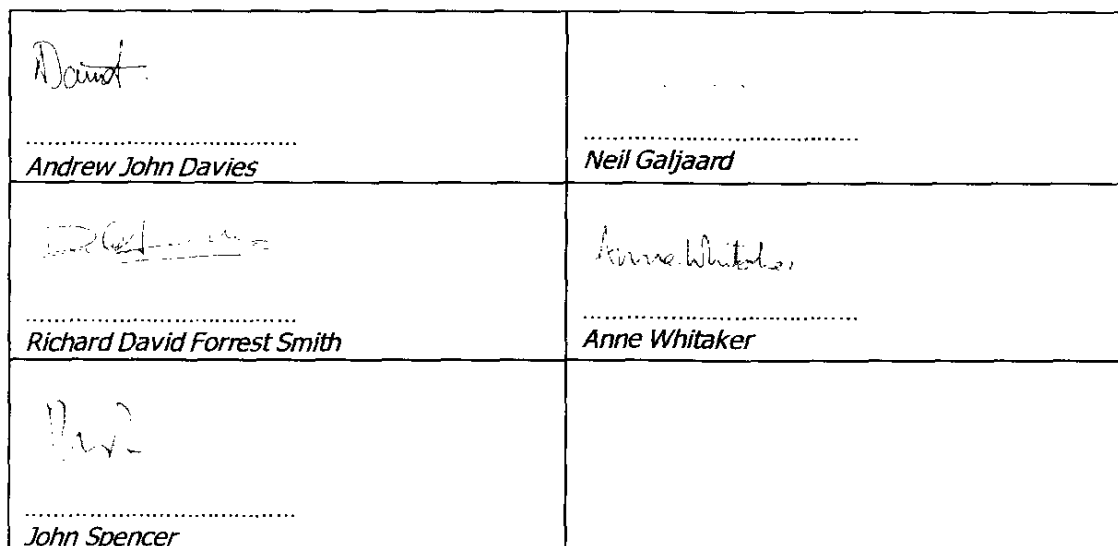 Andrew John Davies
Neil Galjaard
Richard David Forrest Smith
Anne Whitaker
Anne Whitaker
John Spencer